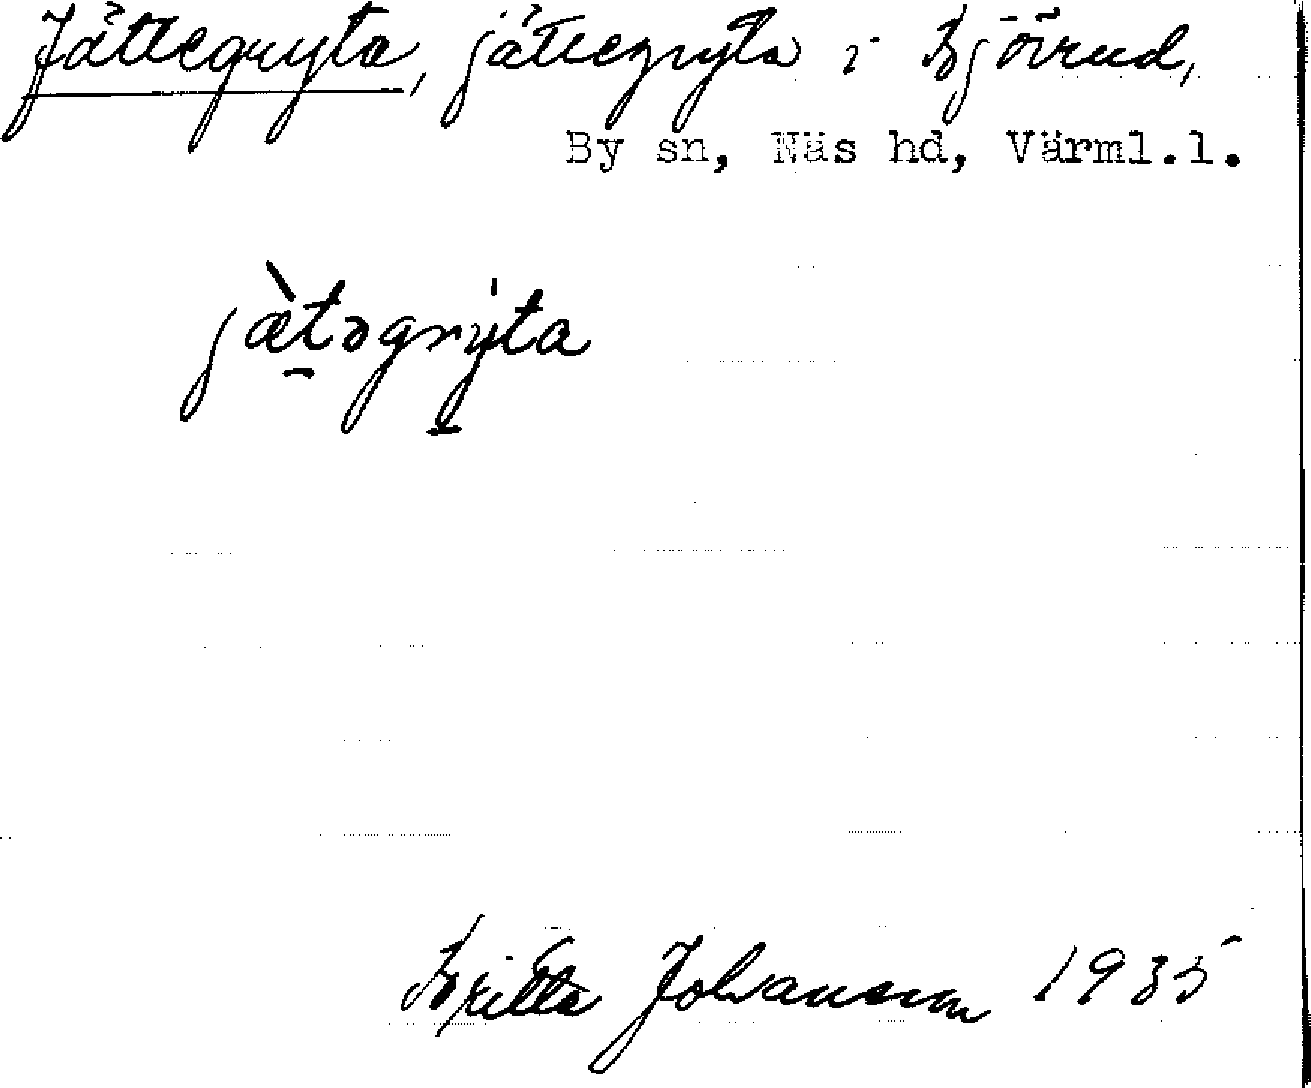 Jättegryta, jättegryta i Bjöirud,
By sn, Näs hd, Värml.l.
jæ̀təgrýta
Britta Johansson 1935